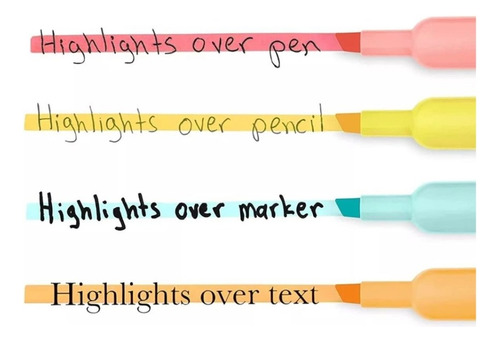 Highlights over pen
Highlights over pencil
Highlights over marker
Highlights over text